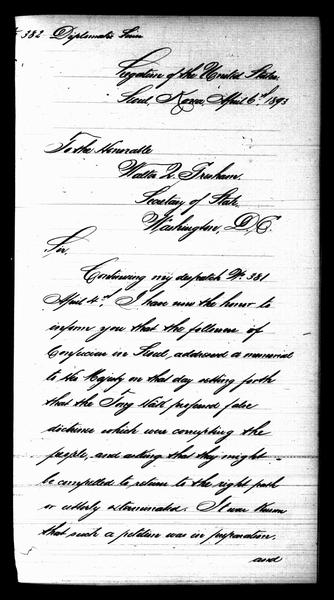 No 382 Diplomatic Series
Legation of the United States
Seoul, Korea, April 6th 1893
To the Honorable
Walter Q. Gresham
Secretary of State
Washington, D.C.
Sir,
Continuing my despatch No. 381
April 4th, I have now the honor to
inform you that the followers of
Confucius in Seoul, addressed a memorial
to His Majesty on that day setting forth
that the Tong Haks prepared false
doctrines which were corrupting the
people, and asking that they might
be compelled to return to the right path
or utterly exterminated. It was known
that such a petition was in preparation,
and